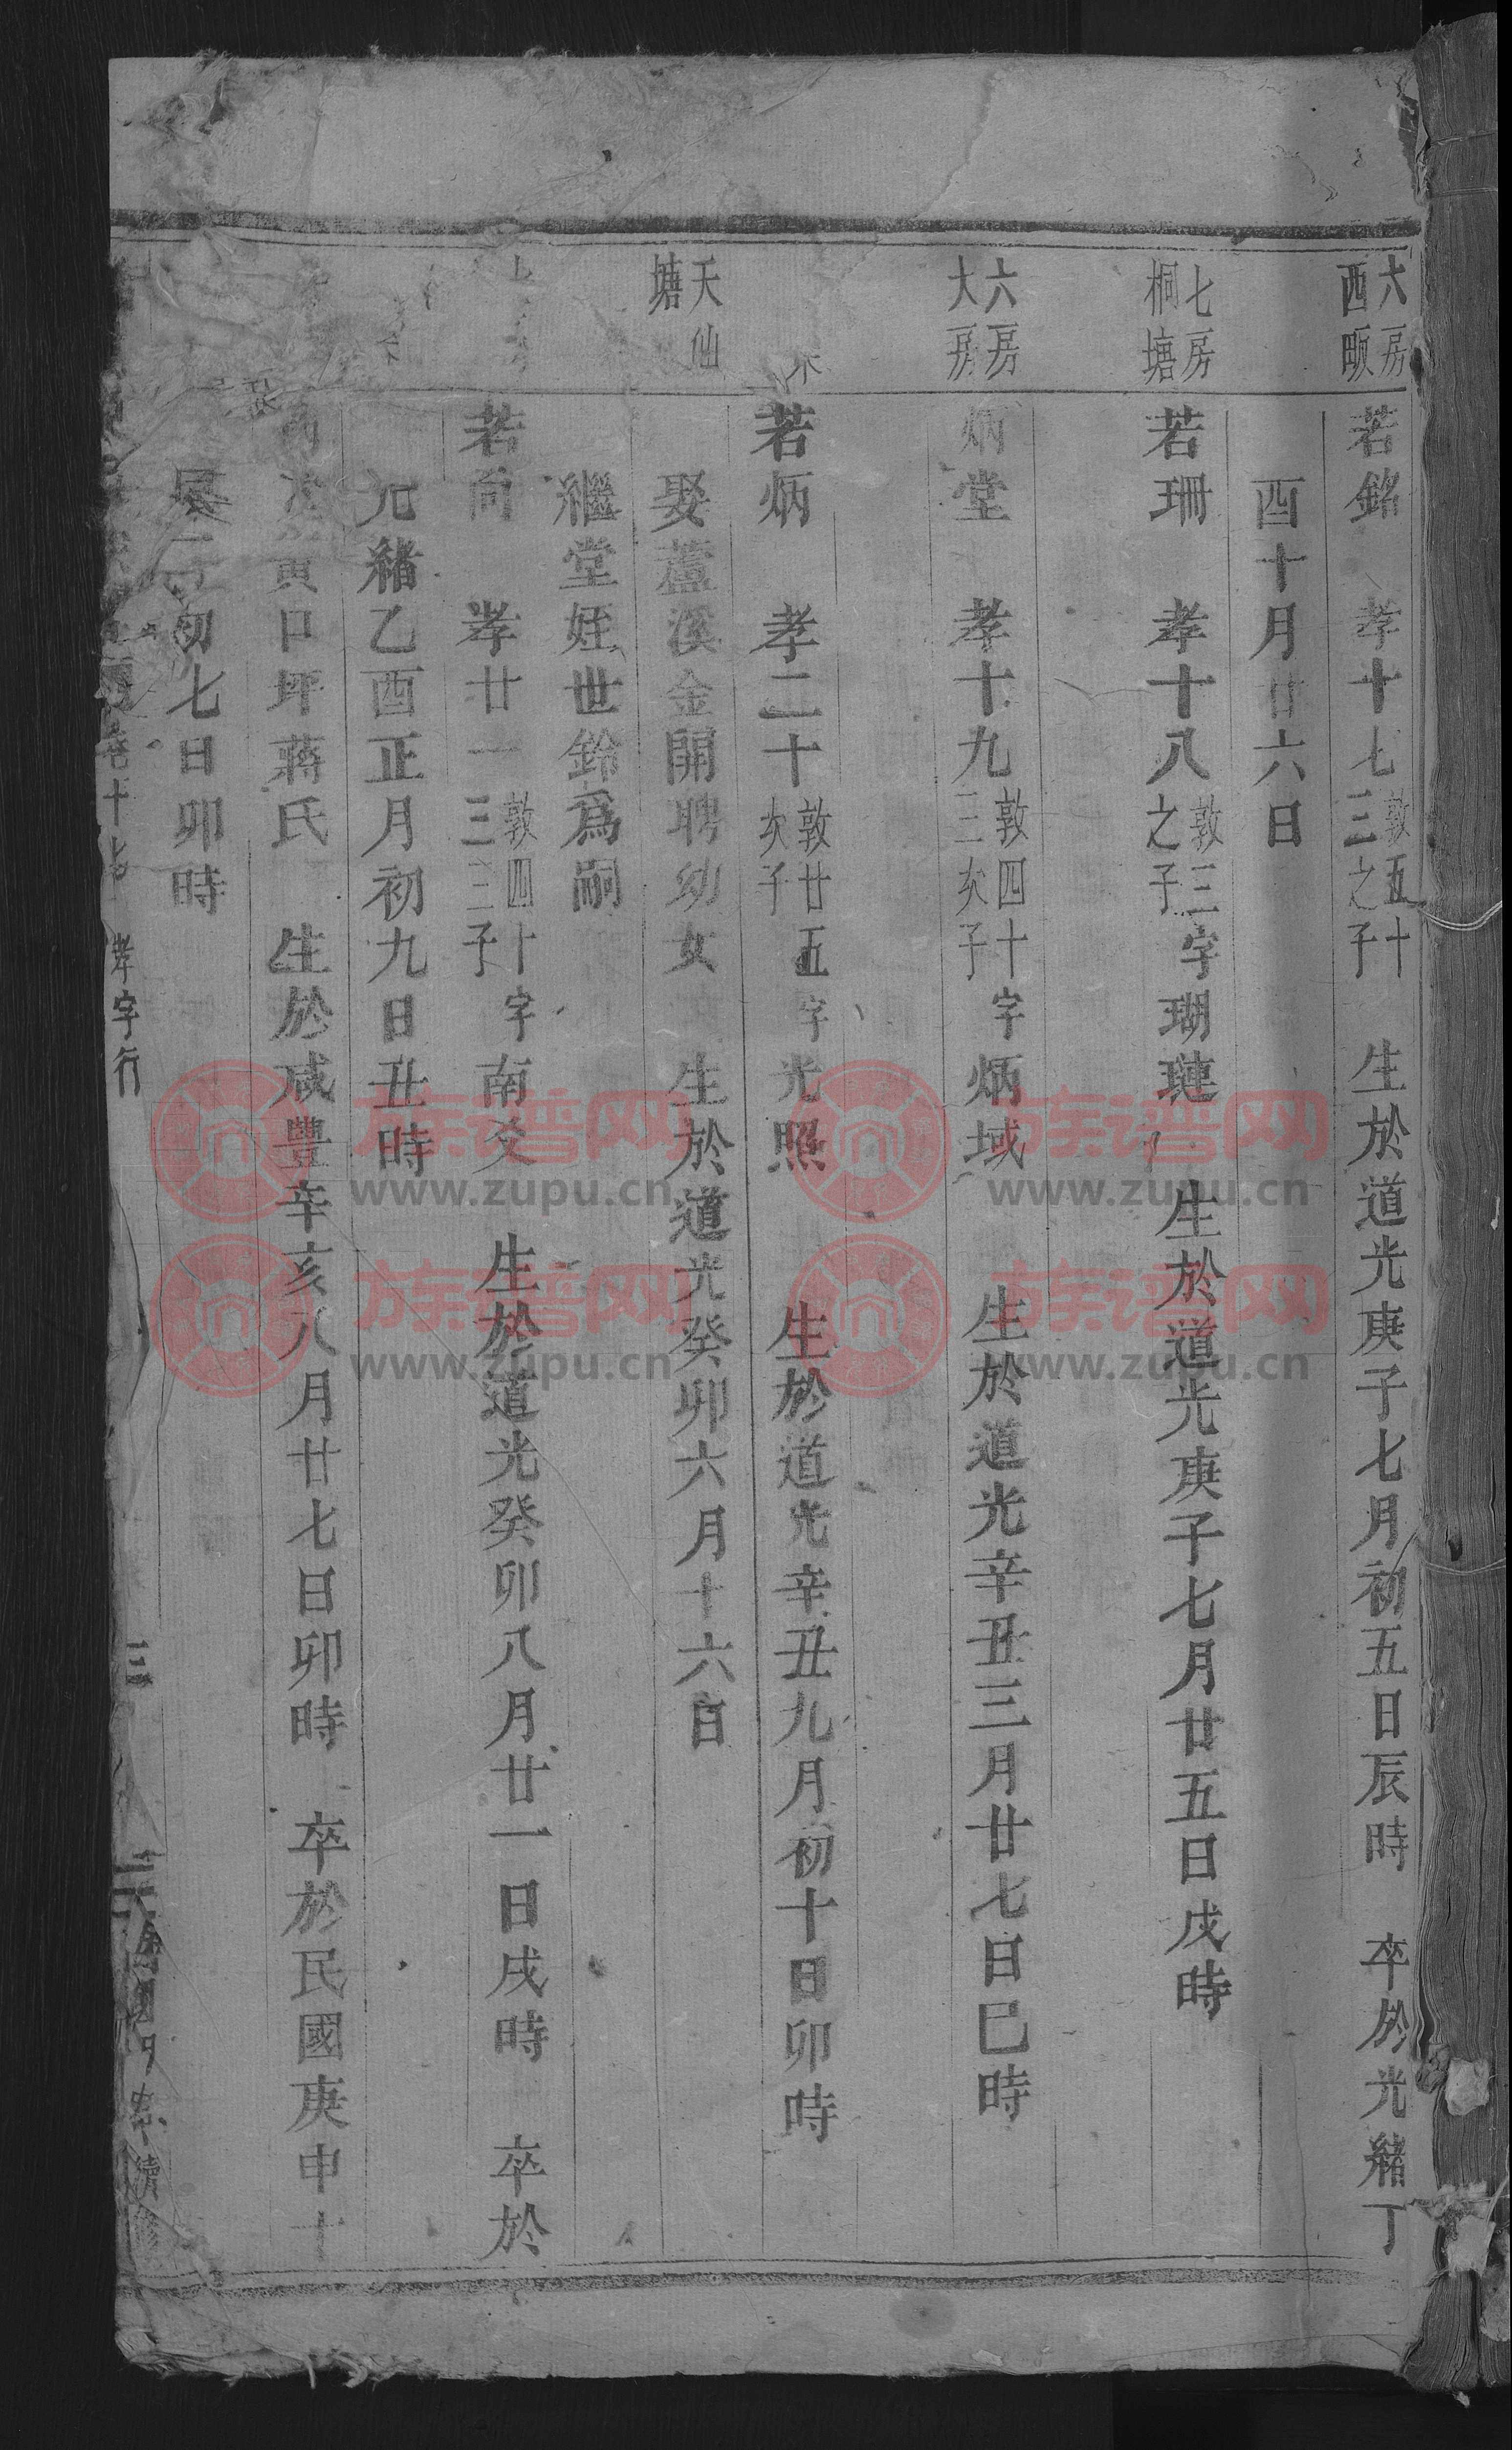 六房
西畈
若銘 孝十七敦五十三之子 生於道光庚子七月初五日辰時 卒於光緒丁
酉十月廿六日
七房
桐塘
若珊 孝十八敦三之子字瑚璉 生於道光庚子七月廿五日戌時
六房
大房
炳堂 孝十九敦四十三次子字炳域 生於道光辛丑三月廿七日巳時
若炳 孝二十敦廿五次子字光照 生於道光辛丑九月初十日卯時
天仙
塘
娶蘆溪金開聘幼女 生於道光癸卯六月十六日
繼堂姪世鈴爲嗣
若尚 孝廿一敦四十三三子字南爻 生於道光癸卯八月廿一日戌時 卒於
光緒乙酉正月初九日丑時
寅口坪蔣氏 生於咸豐辛亥八月廿七日卯時 卒於民國庚申十
初七日卯時
卷十七 孝字行
三
續修
族谱网
www.zupu.cn
族谱网
www.zupu.cn
族谱网
www.zupu.cn
族谱网
www.zupu.cn